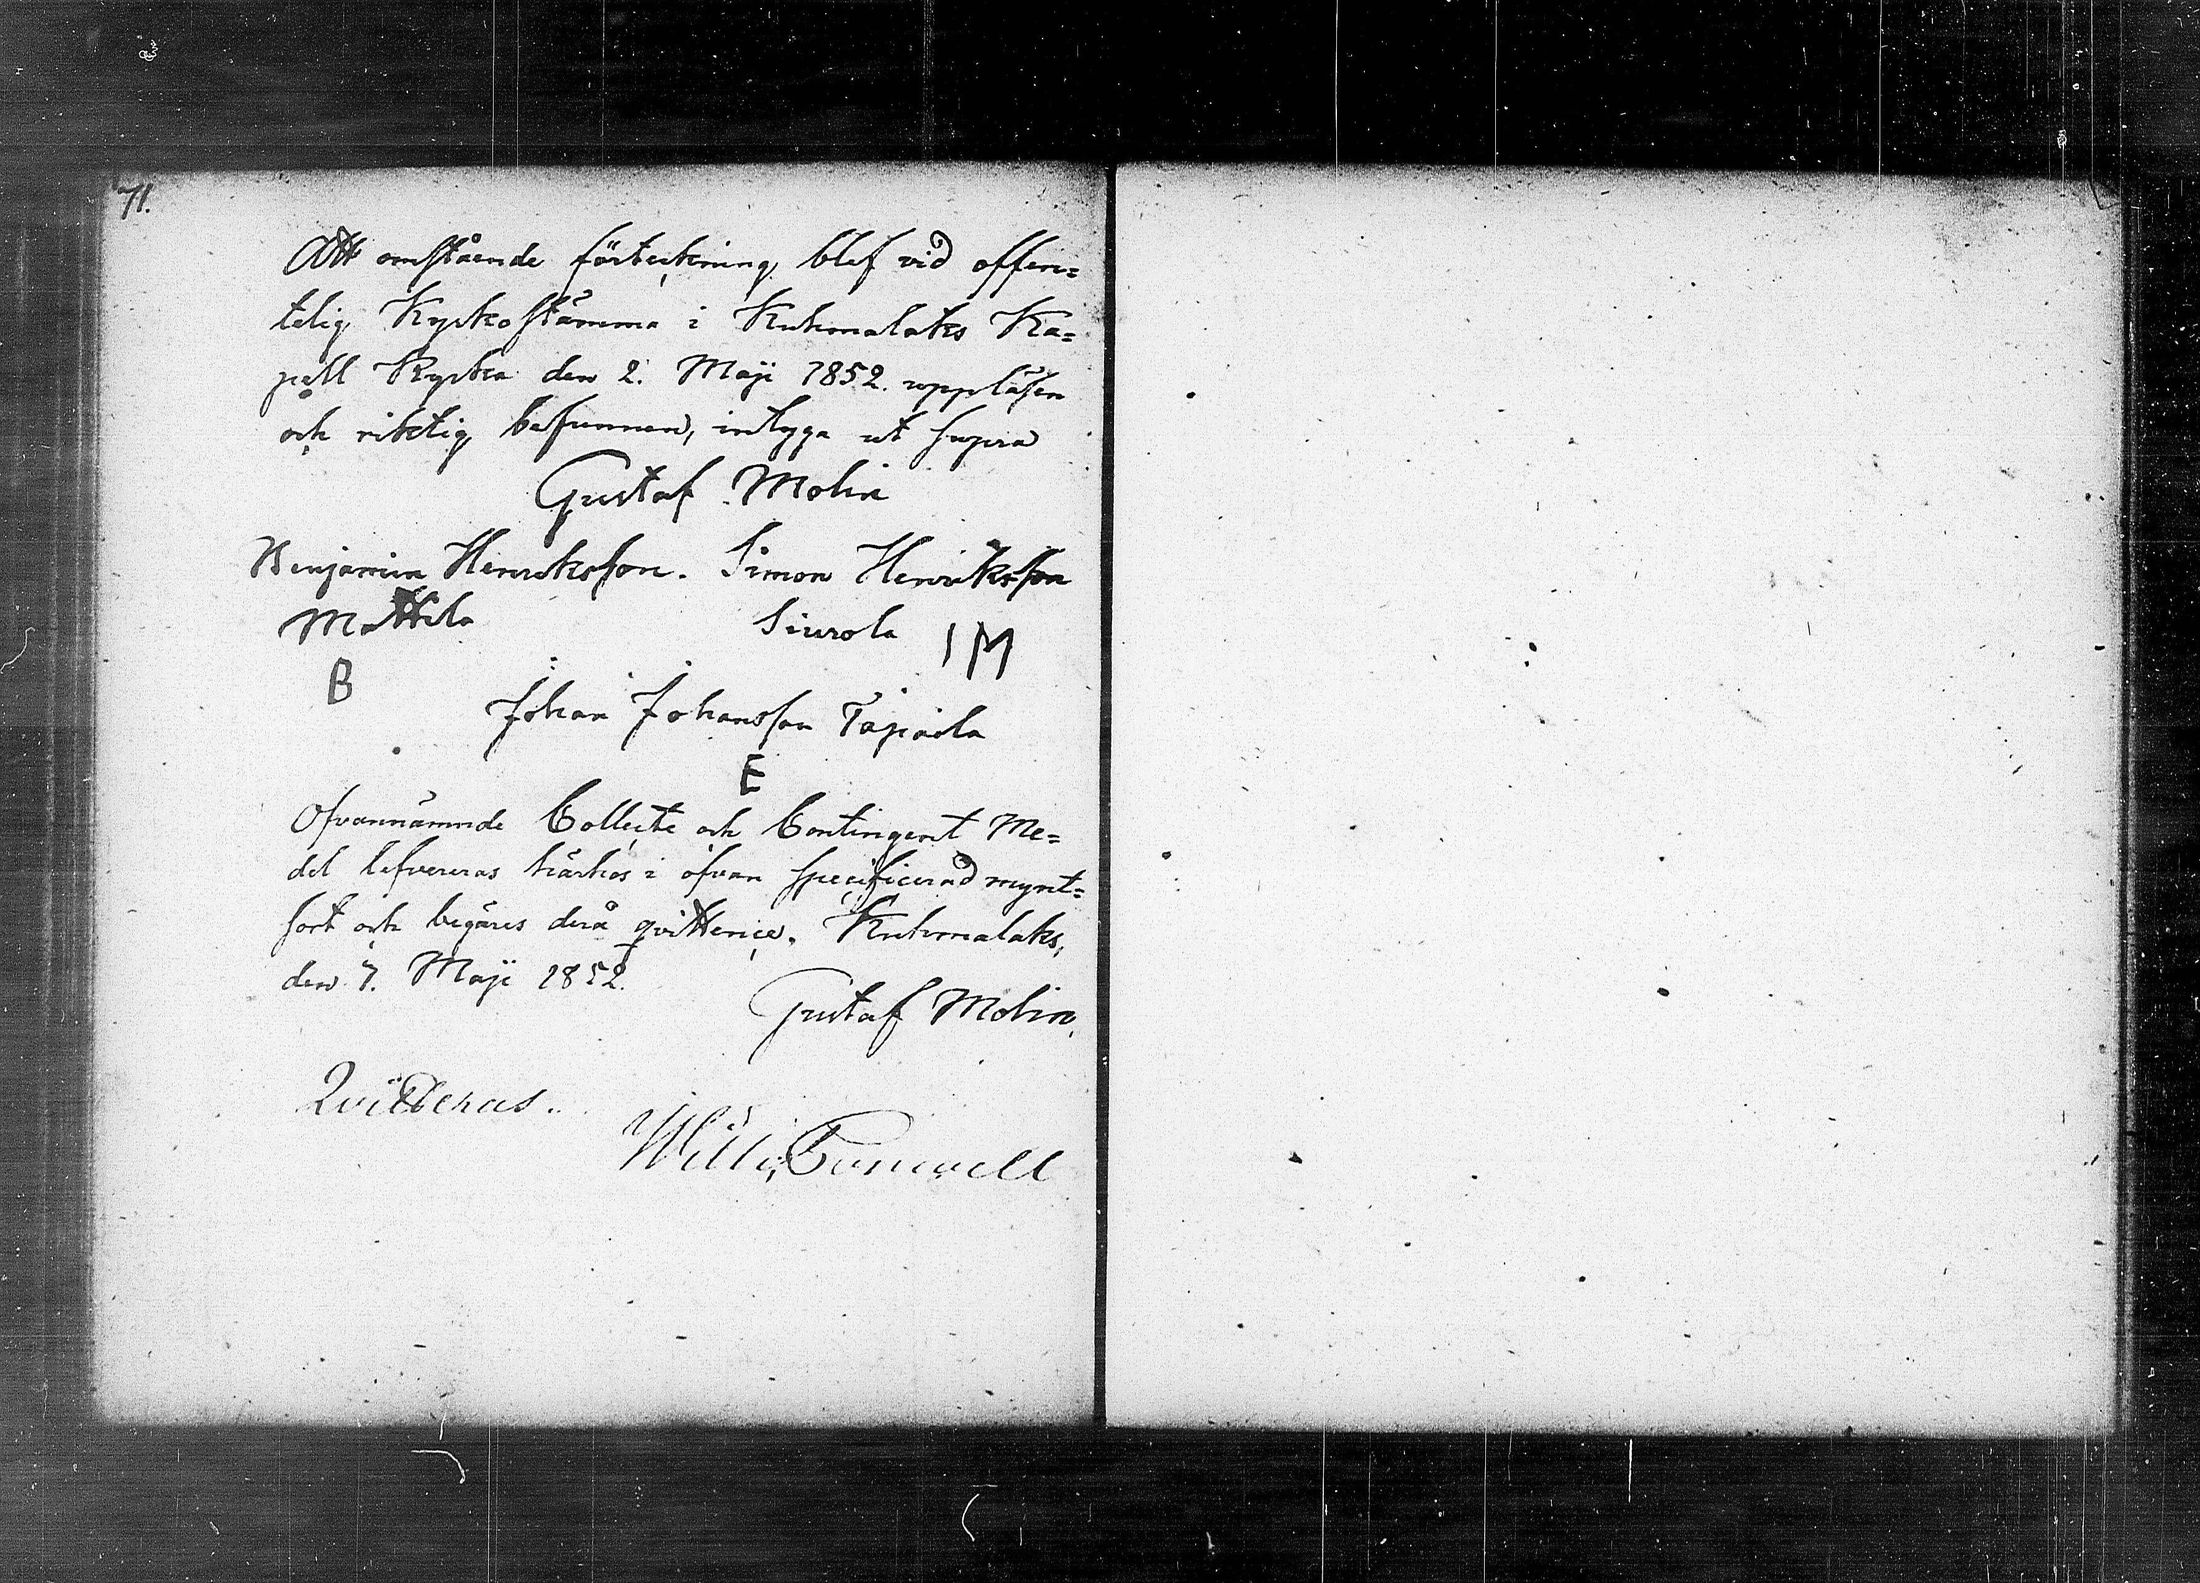 71.
Att omstående förteckning blef vid offen=
telig Kyrkostämma i Kuhmalaks Ka=
pell Kyrka den 2. Maji 1852. uppläsen
och riktig befunnen, intyga ut supra
Gustaf Molin
Benjamin Henriksson. Simon Henriksson
Mattila Siurola I M
B
Johan Johansson Tapiola
E
Ofvannämnde Collecte och Contingent Me=
del lefvereras härhos i ofvan specificerad mynt=
sort och begäres derå qvittence. Kuhmalaks,
den 7. Maji 1852.
Gustaf Molin.
Qvitteras.